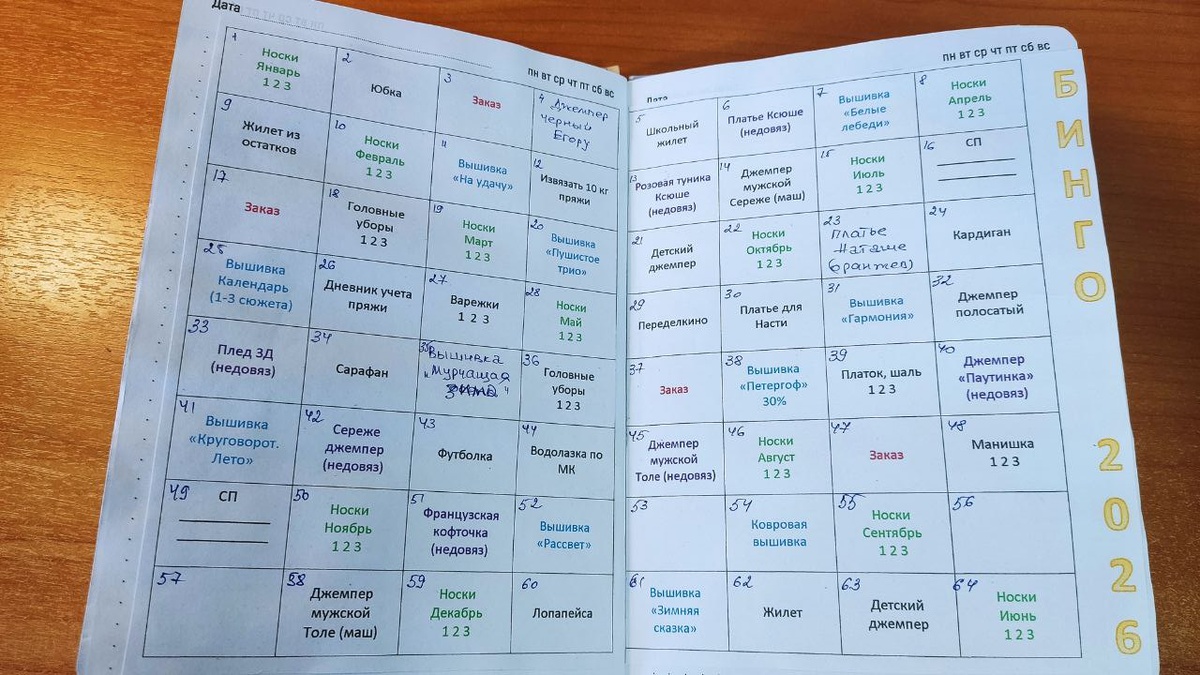 Дата
пн вт ср чт пт сб вс
1
Носки
Январь
1 2 3
2
Юбка
3
Заказ
4 Джемпер
черный
Егору
9
Жилет из
остатков
10
Носки
Февраль
1 2 3
11
Вышивка
«На удачу»
12
Извязать 10 кг
пряжи
17
Заказ
18
Головные
уборы
1 2 3
19
Носки
Март
1 2 3
20
Вышивка
«Пушистое
трио»
25
Вышивка
Календарь
(1-3 сюжета)
26
Дневник учета
пряжи
27
Варежки
1 2 3
28
Носки
Май
1 2 3
33
Плед 3Д
(недовяз)
34
Сарафан
35
Вышивка
"Мурчащая
зима"
36
Головные
уборы
1 2 3
41
Вышивка
«Круговорот.
Лето»
42
Сереже
джемпер
(недовяз)
43
Футболка
44
Водолазка по
МК
49
СП
50
Носки
Ноябрь
1 2 3
51
Французская
кофточка
(недовяз)
52
Вышивка
«Рассвет»
57
58
Джемпер
мужской
Толе (маш)
59
Носки
Декабрь
1 2 3
60
Лопапейса
Дата
пн вт ср чт пт сб вс
5
Школьный
жилет
6
Платье Ксюше
(недовяз)
7
Вышивка
«Белые
лебеди»
8
Носки
Апрель
1 2 3
13
Розовая туника
Ксюше
(недовяз)
14
Джемпер
мужской
Сереже (маш)
15
Носки
Июль
1 2 3
16
СП
21
Детский
джемпер
22
Носки
Октябрь
1 2 3
23
Платье
Наташе
(оранжев)
24
Кардиган
29
Переделкино
30
Платье для
Насти
31
Вышивка
«Гармония»
32
Джемпер
полосатый
37
Заказ
38
Вышивка
«Петергоф»
30%
39
Платок, шаль
1 2 3
40
Джемпер
«Паутинка»
(недовяз)
45
Джемпер
мужской
Толе (недовяз)
46
Носки
Август
1 2 3
47
Заказ
48
Манишка
1 2 3
53
54
Ковровая
вышивка
55
Носки
Сентябрь
1 2 3
56
61
Вышивка
«Зимняя
сказка»
62
Жилет
63
Детский
джемпер
64
Носки
Июнь
1 2 3
БИНГО
2026